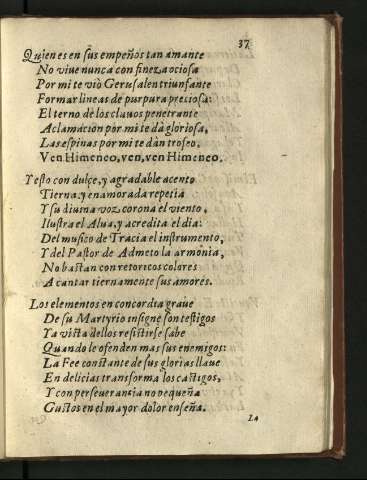 37
Quien es en sus empeños tan amante
No viue nunca con fineza ociosa
Por mi te viò Gerusalen triunfante
Formar lineas de purpura preciosa:
El terno de los clauos penetrante
Aclamacion por mi te dà gloriosa,
Las espinas por mi te dan trofeo,
Ven Himeneo, ven, ven Himeneo.
Y esto con dulçe, y agradable acento
Tierna, y enamorada repetia
Y su diuina voz corona el viento,
Ilustra el Alua, y acredita el dia:
Del musico de Tracia el instrumento,
Y del Pastor de Admeto la armonia,
No bastan con retoricos colores
A cantar tiernamente sus amores.
Los elementos en concordia graue
De su Martyrio insigne son testigos
Ya vista dellos resistirse sabe
Quando le ofenden mas sus enemigos:
La Fee constante de sus glorias llaue
En delicias transforma los castigos,
Y con perseuerancia no pequeña
Gustos en el mayor dolor enseña.
La